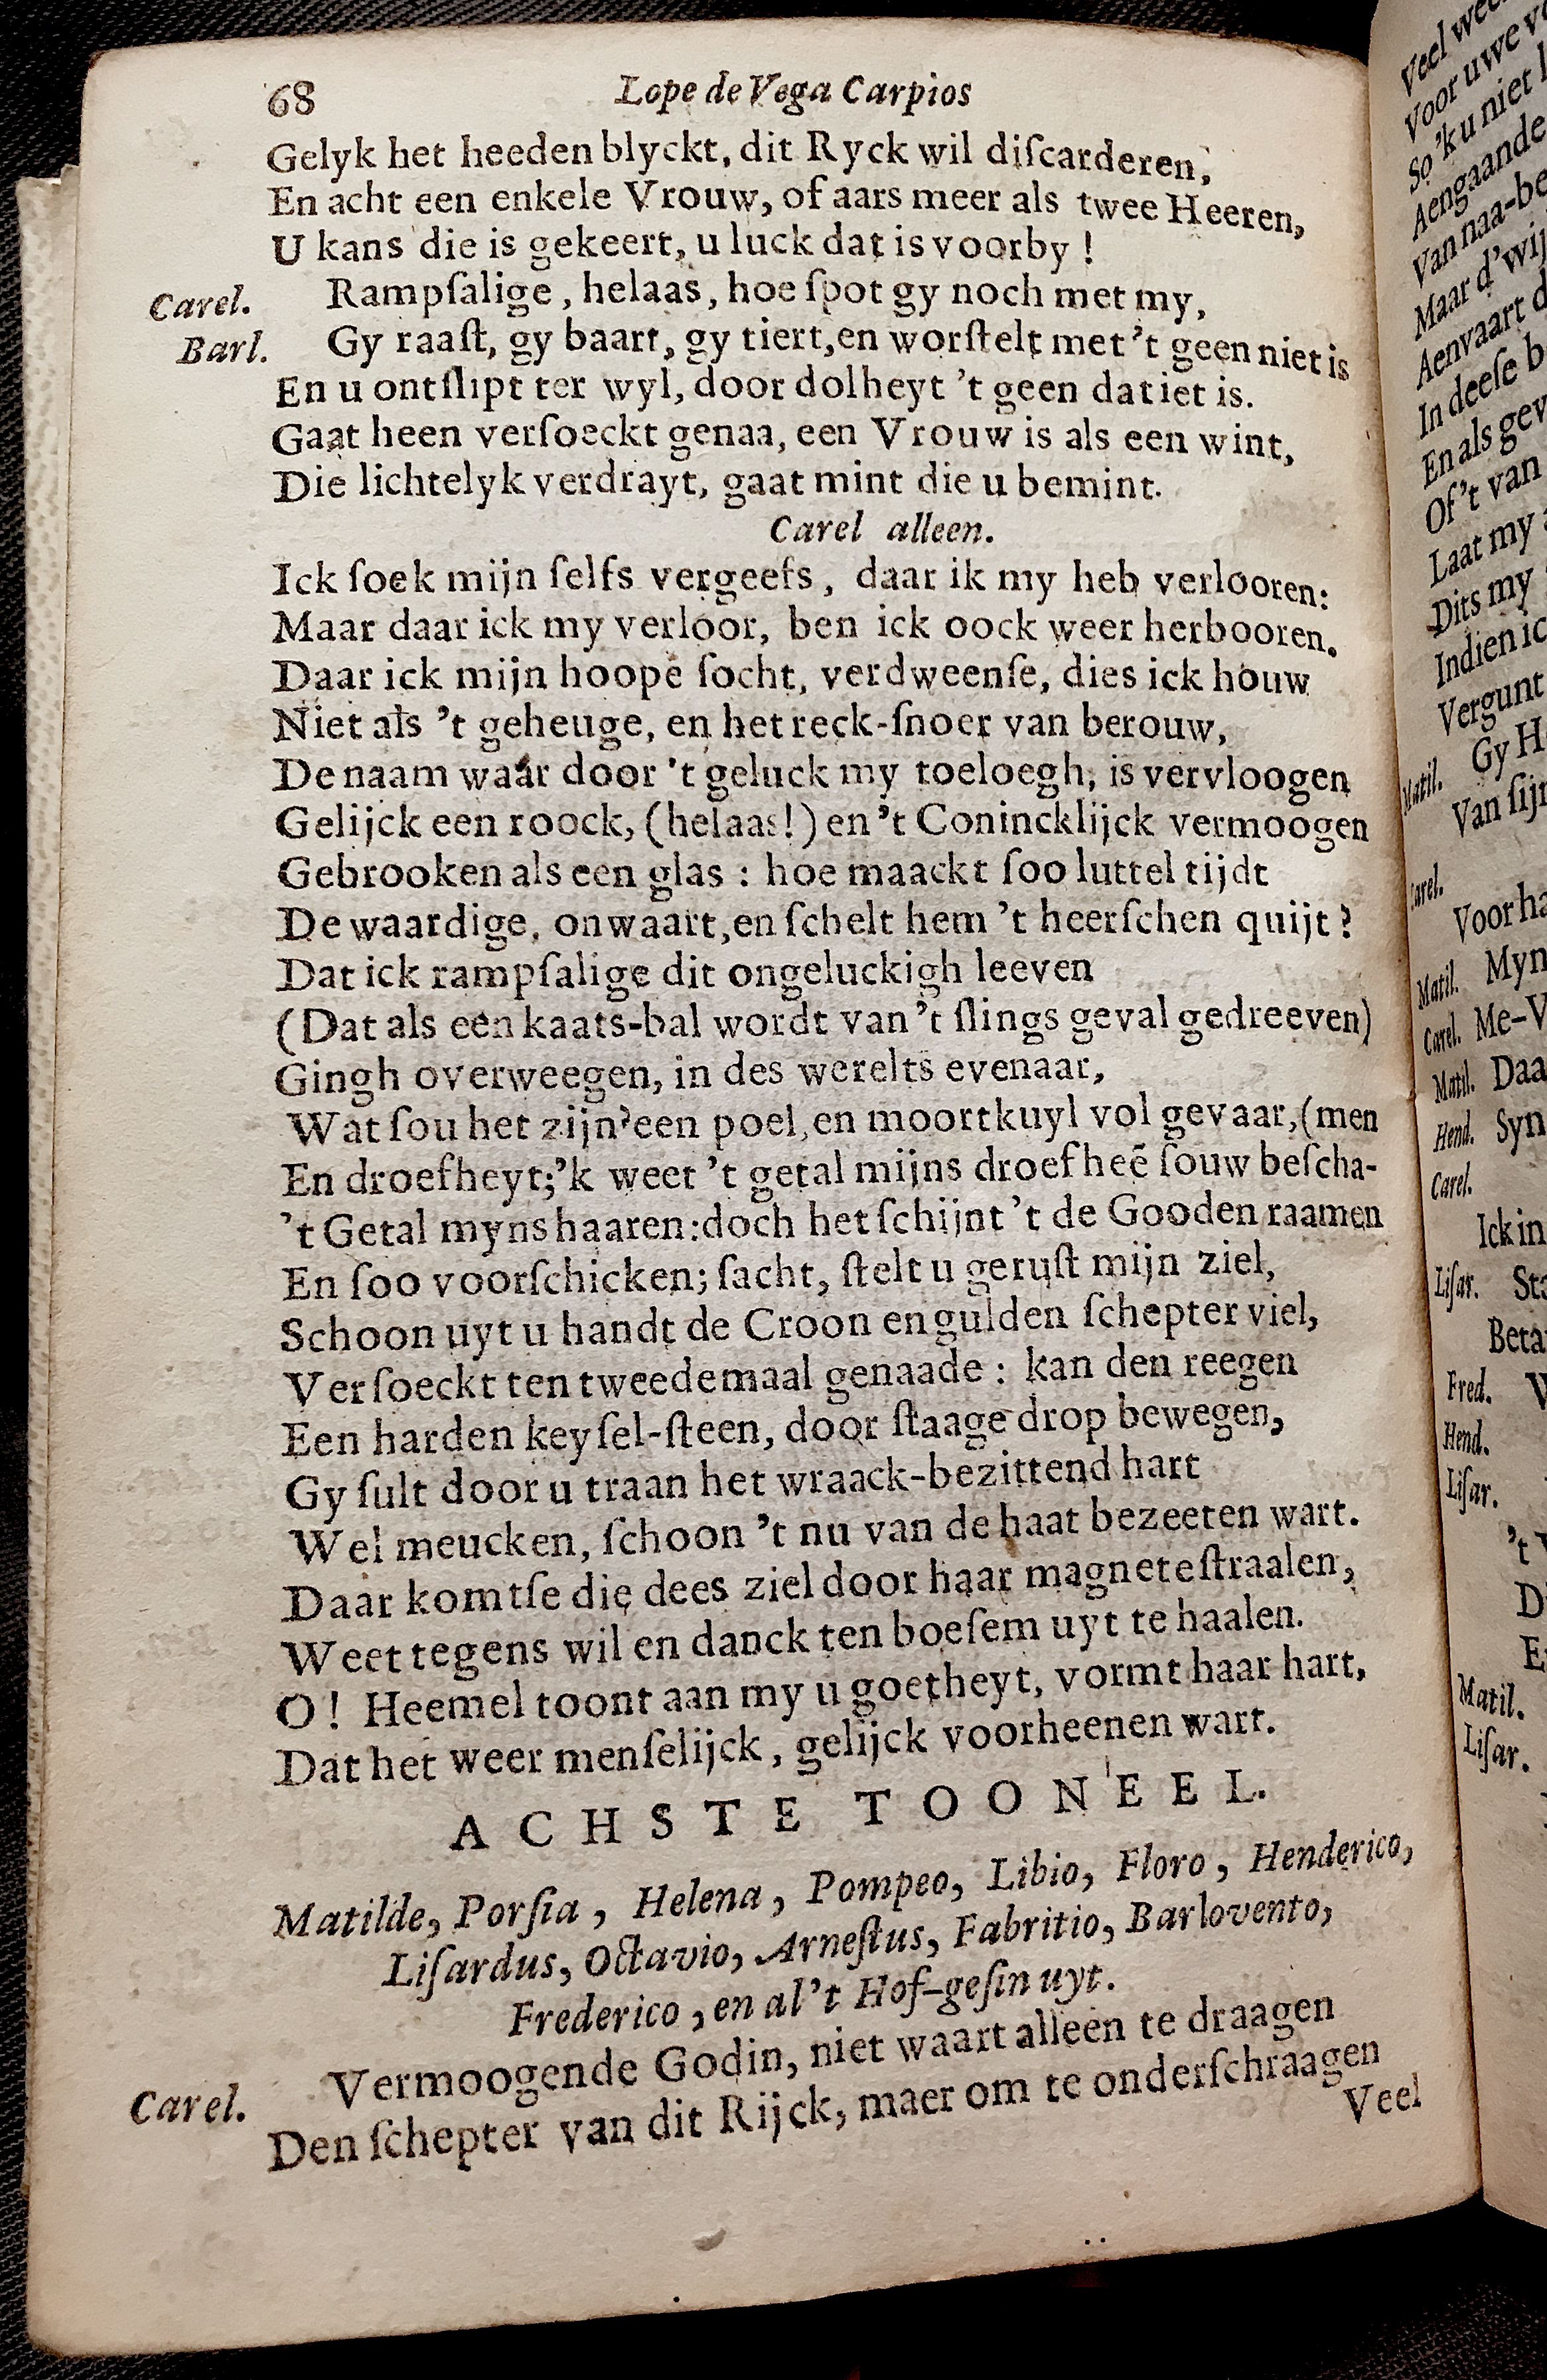 68 Lope de Vega Carpios
Gelyk het heeden blyckt, dit Ryck wil diſcarderen,
En acht een enkele Vrouw, of aars meer als twee Heeren,
U kans die is gekeert, u luck dat is voorby!
Carel. Rampſalige, helaas, hoe ſpot gy noch met my,
Barl. Gy raaſt, gy baart, gy tiert, en worſtelt met 't geen niet is
En u ontſlipt ter wyl, door dolheyt 't geen dat iet is.
Gaat heen verſoeckt genaa, een Vrouw is als een wint,
Die lichtelyk verdrayt, gaat mint die u bemint.
Carel alleen.
Ick ſoek mijn ſelfs vergeefs, daar ik my heb verlooren:
Maar daar ick my verloor, ben ick oock weer herbooren.
Daar ick mijn hoope ſocht, verdweenſe, dies ick houw
Niet als 't geheuge, en het reck-ſnoer van berouw,
De naam waar door 't geluck my toeloegh, is vervloogen
Gelijck een roock, (helaas!) en 't Conincklijck vermoogen
Gebrooken als een glas: hoe maackt ſoo luttel tijdt
De waardige, onwaart, en ſchelt hem 't heerſchen quijt?
Dat ick rampſalige dit ongeluckigh leeven
(Dat als een kaats-bal wordt van 't ſlings geval gedreeven)
Gingh overweegen, in des werelts evenaar,
Wat ſou het zijn? een poel, en moortkuyl vol gevaar, (men
En droefheyt; 'k weet 't getal mijns droefheē ſouw beſcha-
't Getal myns haaren: doch het ſchijnt 't de Gooden raamen
En ſoo voorſchicken; ſacht, ſtelt u geruſt mijn ziel,
Schoon uyt u handt de Croon en gulden ſchepter viel,
Verſoeckt ten tweedemaal genaade: kan den reegen
Een harden keyſel-ſteen, door ſtaage drop bewegen,
Gy ſult door u traan het wraack-bezittend hart
Wel meucken, ſchoon 't nu van de haat bezeeten wart.
Daar komtſe die dees ziel door haar magneteſtraalen,
Weet tegens wil en danck ten boeſem uyt te haalen.
O! Heemel toont aan my u goetheyt, vormt haar hart,
Dat het weer menſelijck, gelijck voorheenen wart.
ACHSTE TOONEEL.
Matilde, Porſia, Helena, Pompeo, Libio, Floro, Henderico,
Liſardus, Octavio, Arneſtus, Fabritio, Barlovento,
Frederico, en al't Hof-geſin uyt.
Carel. Vermoogende Godin, niet waart alleen te draagen
Den ſchepter van dit Rijck, maer om te onderſchraagen
Veel
Voor uwe
So 'k u niet
Aengaande
Van naa-be
Maar d'wij
Aenvaart d
In deeſe b
En als gev
Of 't van
Laat my
Dits my
Indien ic
Vergunt
Matil. Gy H
Van ſijn
Carel.
Voor ha
Matil. Myn
Carel. Me-V
Matil. Daa
Hend. Syn
Carel.
Ick in
Liſar. Sta
Beta
Fred.
Hend.
Liſar.
't
Matil.
Liſar.